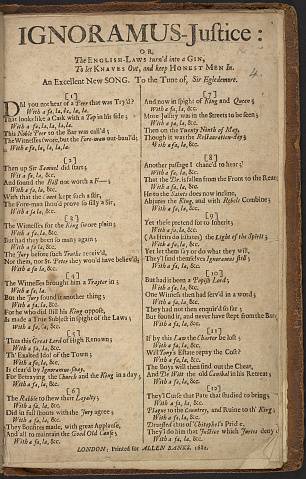 IGNORAMUS-Justice:
OR,
The ENGLISH-LAWS turn'd into a GIN,
To let KNAVES Out, and keep HONEST MEN In.
An Excellent New SONG. To the Tune of, Sir Egledemore.
4.
[1]
DId you not hear of a Peer that was Try'd?
With a fa, la, la, la, la.
That looks like a Cask with a Tap in his side;
With a fa, la, la, la, la.
This Noble Peer to the Bar was call'd;
The Witnesses sworn, but the Fore-man out-baul'd;
With a fa, la, la, la, la.
[2]
Then up Sir Samuel did start;
With a fa, la, &c.
And found the Bill not worth a F——;
With a fa, la, &c.
With that the Court kept such a stir,
The Fore-man should prove so silly a Sir,
With a fa, la, &c.
[3]
The Witnesses for the King swore plain;
With a fa, la, &c.
But had they been so many again;
With a fa, la, &c.
The Jury before such Truths receiv'd,
Nor them, nor St. Peter they would have believ'd;
With a fa, la, &c.
[4]
The Witnesses brought him a Traytor in;
With a fa, la.
But the Jury found it another thing;
With a fa, la, &c.
For he who did still his King oppose,
Is made a True Subject in spight of the Laws;
With a fa, la, &c.
[5]
Thus this Great Lord of High Renown;
With a fa, la, &c.
Th' Exalted Idol of the Town;
With a fa, la, &c.
Is clear'd by Ignoramus-sway,
For Betraying the Church and the King in a day,
With a fa, la, &c.
[6]
The Rabble to shew their Loyalty;
With a fa, la, &c.
Did in full shouts with the Jury agree;
With a fa, la, &c.
They Bonfires made, with great Applause,
And all to maintain the Good Old Cause;
With a fa, la, &c.
[7]
And now in spight of King and Queen;
With a fa, la, &c.
More Justice was in the Streets to be seen;
With a fa, la, &c.
Then on the Twenty Ninth of May,
Though it was the Restauration-day;
With a fa, la, &c.
[8]
Another passage I chanc'd to hear;
With a fa, la, &c.
That the Dr. is fallen from the Front to the Rear;
With a fa, la, &c.
He to the Saints does now incline,
Abjures the King, and with Rebels Combine;
With a fa, la, &c.
[9]
Yet these pretend for to Inherit;
With a fa, la, &c.
(As them do listens) the Light of the Spirit;
With a fa, la, &c.
But let them say or do what they will,
They'l find themselves Ignoramus still;
With a fa, la, &c.
[10]
But had it been a Popish Lord;
With a fa, la, &c.
One Witness then had serv'd in a word;
With a fa, la, &c.
They had not then enquir'd so far;
But found it, and never have stept from the Bar;
With a fa, la, &c.
[11]
If by this Law the Charter be lost;
With a fa, la, &c.
Will Tony's Estate repay the Cost?
With a fa, la, &c.
The Boys will then find out the Cheat,
And De Witt the old Caudal in his Retreat;
With a fa, la, &c.
[12]
They'l Curse that Pate that studied to bring;
With a fa, la, &c.
Plague to the Country, and Ruine to th' King,
With a fa, la, &c.
Divested thus of Chitophel's Pride
They'l do him that Justice which Juries deny'd
With a fa, la, &c.
LONDON; Printed for ALLEN BANKS, 1682.